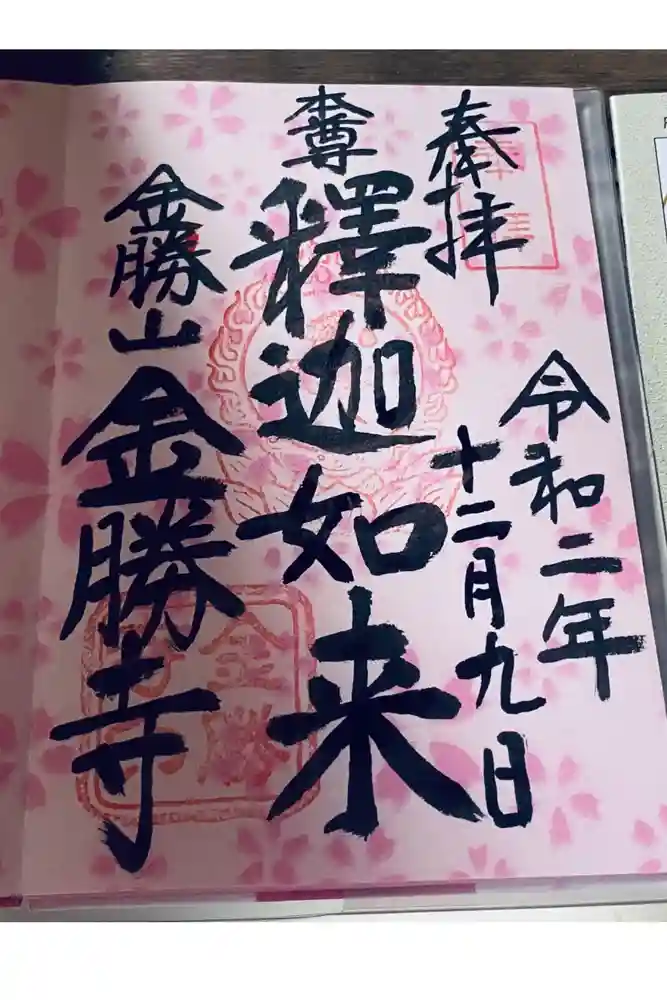 奉拝
令和二年
十二月九日
本尊
釋迦如来
金勝山
金勝寺